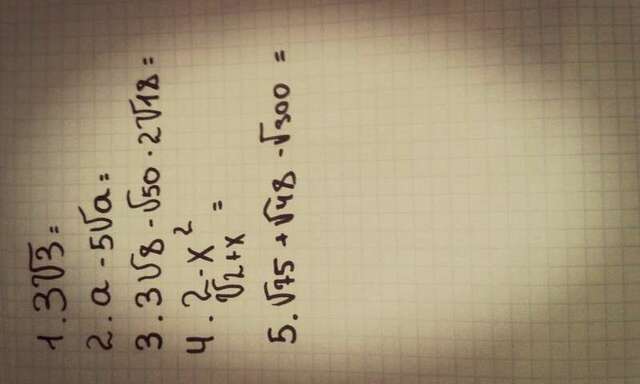 1. 3√3 =
2. a - 5√a =
3. 3√8 - √50 · 2√18 =
4. 2 - x²
√2 + x =
5. √75 + √48 - √300 =